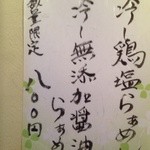 冷し鶏塩らぁめん
冷し無添加醤油
らぁめ
数量限定 八〇〇円